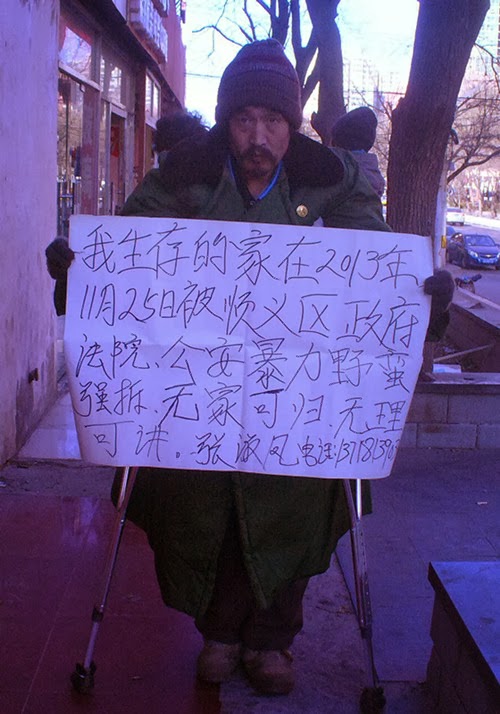 我生存的家在2013年
11月25日被顺义区政府
法院、公安暴力野蛮
强拆、无家可归、无理
可讲。张淑凤电话:137181396